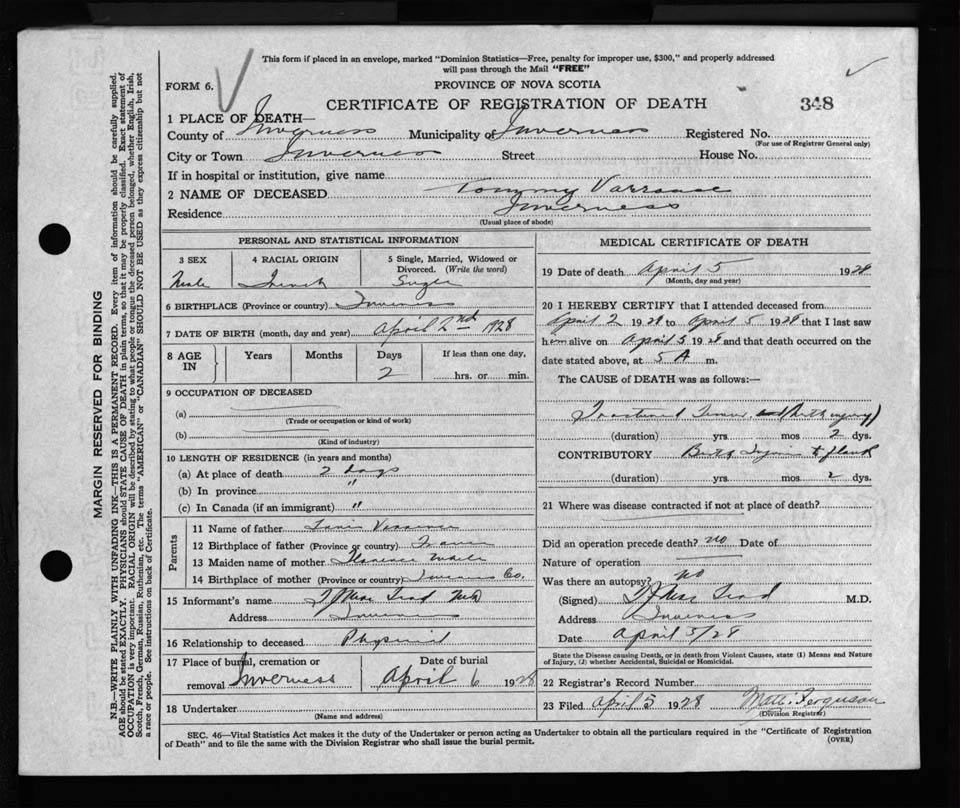 This form if placed in an envelope, marked "Dominion Statistics—Free, penalty for improper use, $300," and properly addressed
will pass through the Mail "FREE"
FORM 6.
PROVINCE OF NOVA SCOTIA
CERTIFICATE OF REGISTRATION OF DEATH
348
1 PLACE OF DEATH—
County of Inverness Municipality of Inverness Registered No.
(For use of Registrar General only)
City or Town Inverness Street House No.
If in hospital or institution, give name
2 NAME OF DECEASED Tommy
Residence Inverness
(Usual place of abode)
PERSONAL AND STATISTICAL INFORMATION
3 SEX Male
4 RACIAL ORIGIN French
5 Single, Married, Widowed or Divorced. (Write the word) Single
6 BIRTHPLACE (Province or country) Inverness
7 DATE OF BIRTH (month, day and year) April 2nd 1928
8 AGE IN Years Months Days 2 If less than one day, hrs. or min.
9 OCCUPATION OF DECEASED
(a)
(Trade or occupation or kind of work)
(b)
(Kind of industry)
10 LENGTH OF RESIDENCE (in years and months)
(a) At place of death 2 days
(b) In province "
(c) In Canada (if an immigrant) "
Parents
11 Name of father
12 Birthplace of father (Province or country) France
13 Maiden name of mother Florence
14 Birthplace of mother (Province or country) Inverness Co.
15 Informant's name
Address Inverness
16 Relationship to deceased Physician
17 Place of burial, cremation or removal Inverness
Date of burial April 6 1928
18 Undertaker
(Name and address)
MEDICAL CERTIFICATE OF DEATH
19 Date of death April 5 1928
(Month, day and year)
20 I HEREBY CERTIFY that I attended deceased from
April 2 1928 to April 5 1928 that I last saw
him alive on April 5 1928 and that death occurred on the
date stated above, at 5 A m.
The CAUSE of DEATH was as follows:—
Fractured Femur (Birth injury)
(duration) yrs mos 2 dys.
CONTRIBUTORY Birth
(duration) yrs. mos 2 dys.
21 Where was disease contracted if not at place of death?
Did an operation precede death? no Date of
Nature of operation
Was there an autopsy? no
(Signed) M.D.
Address Inverness
Date April 5/28
State the Disease causing Death, or in death from Violent Causes, state (1) Means and Nature
of Injury, (2) whether Accidental, Suicidal or Homicidal.
22 Registrar's Record Number
23 Filed April 5 1928 Ferguson
(Division Registrar)
SEC. 46—Vital Statistics Act makes it the duty of the Undertaker or person acting as Undertaker to obtain all the particulars required in the "Certificate of Registration
of Death" and to file the same with the Division Registrar who shall issue the burial permit.
(OVER)
MARGIN RESERVED FOR BINDING
N.B.—WRITE PLAINLY WITH UNFADING INK—THIS IS A PERMANENT RECORD. Every item of information should be carefully supplied.
AGE should be stated EXACTLY. PHYSICIANS should STATE CAUSE OF DEATH in plain terms, so that it may be properly classified. Exact statement of
OCCUPATION is very important. RACIAL ORIGIN will be described by stating to what people or tongue the deceased person belonged, whether English, Irish,
Scotch, French, German, Russian, Ruthenian, etc. The terms "AMERICAN" or "CANADIAN" SHOULD NOT BE USED as they express citizenship but not
a race or people. See instructions on back of Certificate.